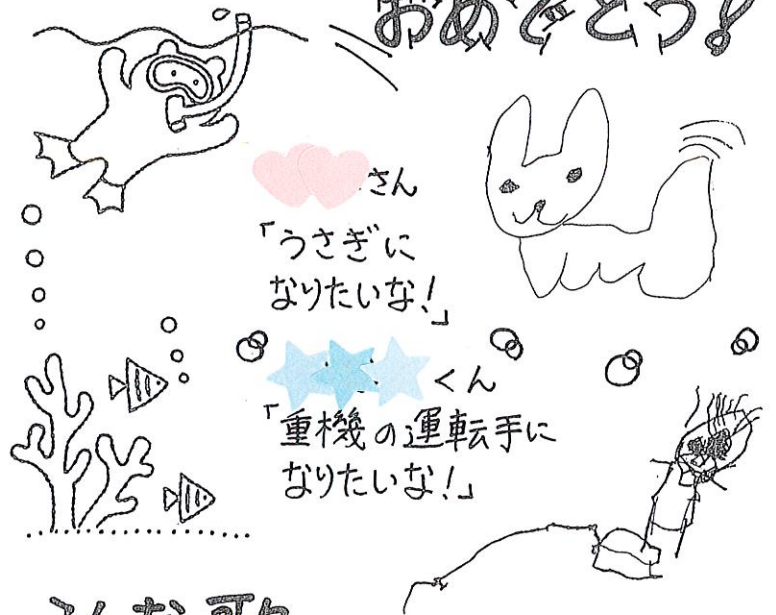 おめでとう!
さん
「うさぎに
なりたいな!」
くん
「重機の運転手に
なりたいな!」